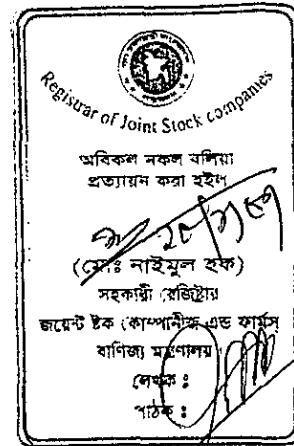 Registrar of Joint Stock companies
অবিকল নকল বলিয়া
প্রত্যায়ন করা হইল
(মোঃ নাইমুল হক)
সহকারী রেজিষ্ট্রার
জয়েন্ট ষ্টক কোম্পানীজ এন্ড ফার্মস
বাণিজ্য মন্ত্রণালয়
লেখক :
পাঠক :